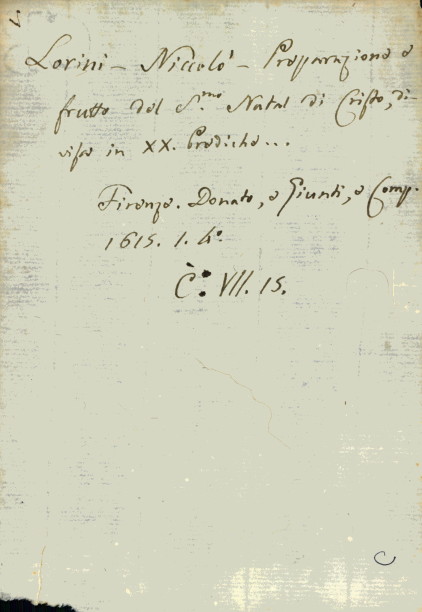 Lorini - Niccolò - Preparazione e
frutto del S.mo Natal di Cristo, di-
visa in XX. Prediche...
Firenze. Donato, e Giunti, e Comp.
1615. 1. 4°.
C. VII. 15.